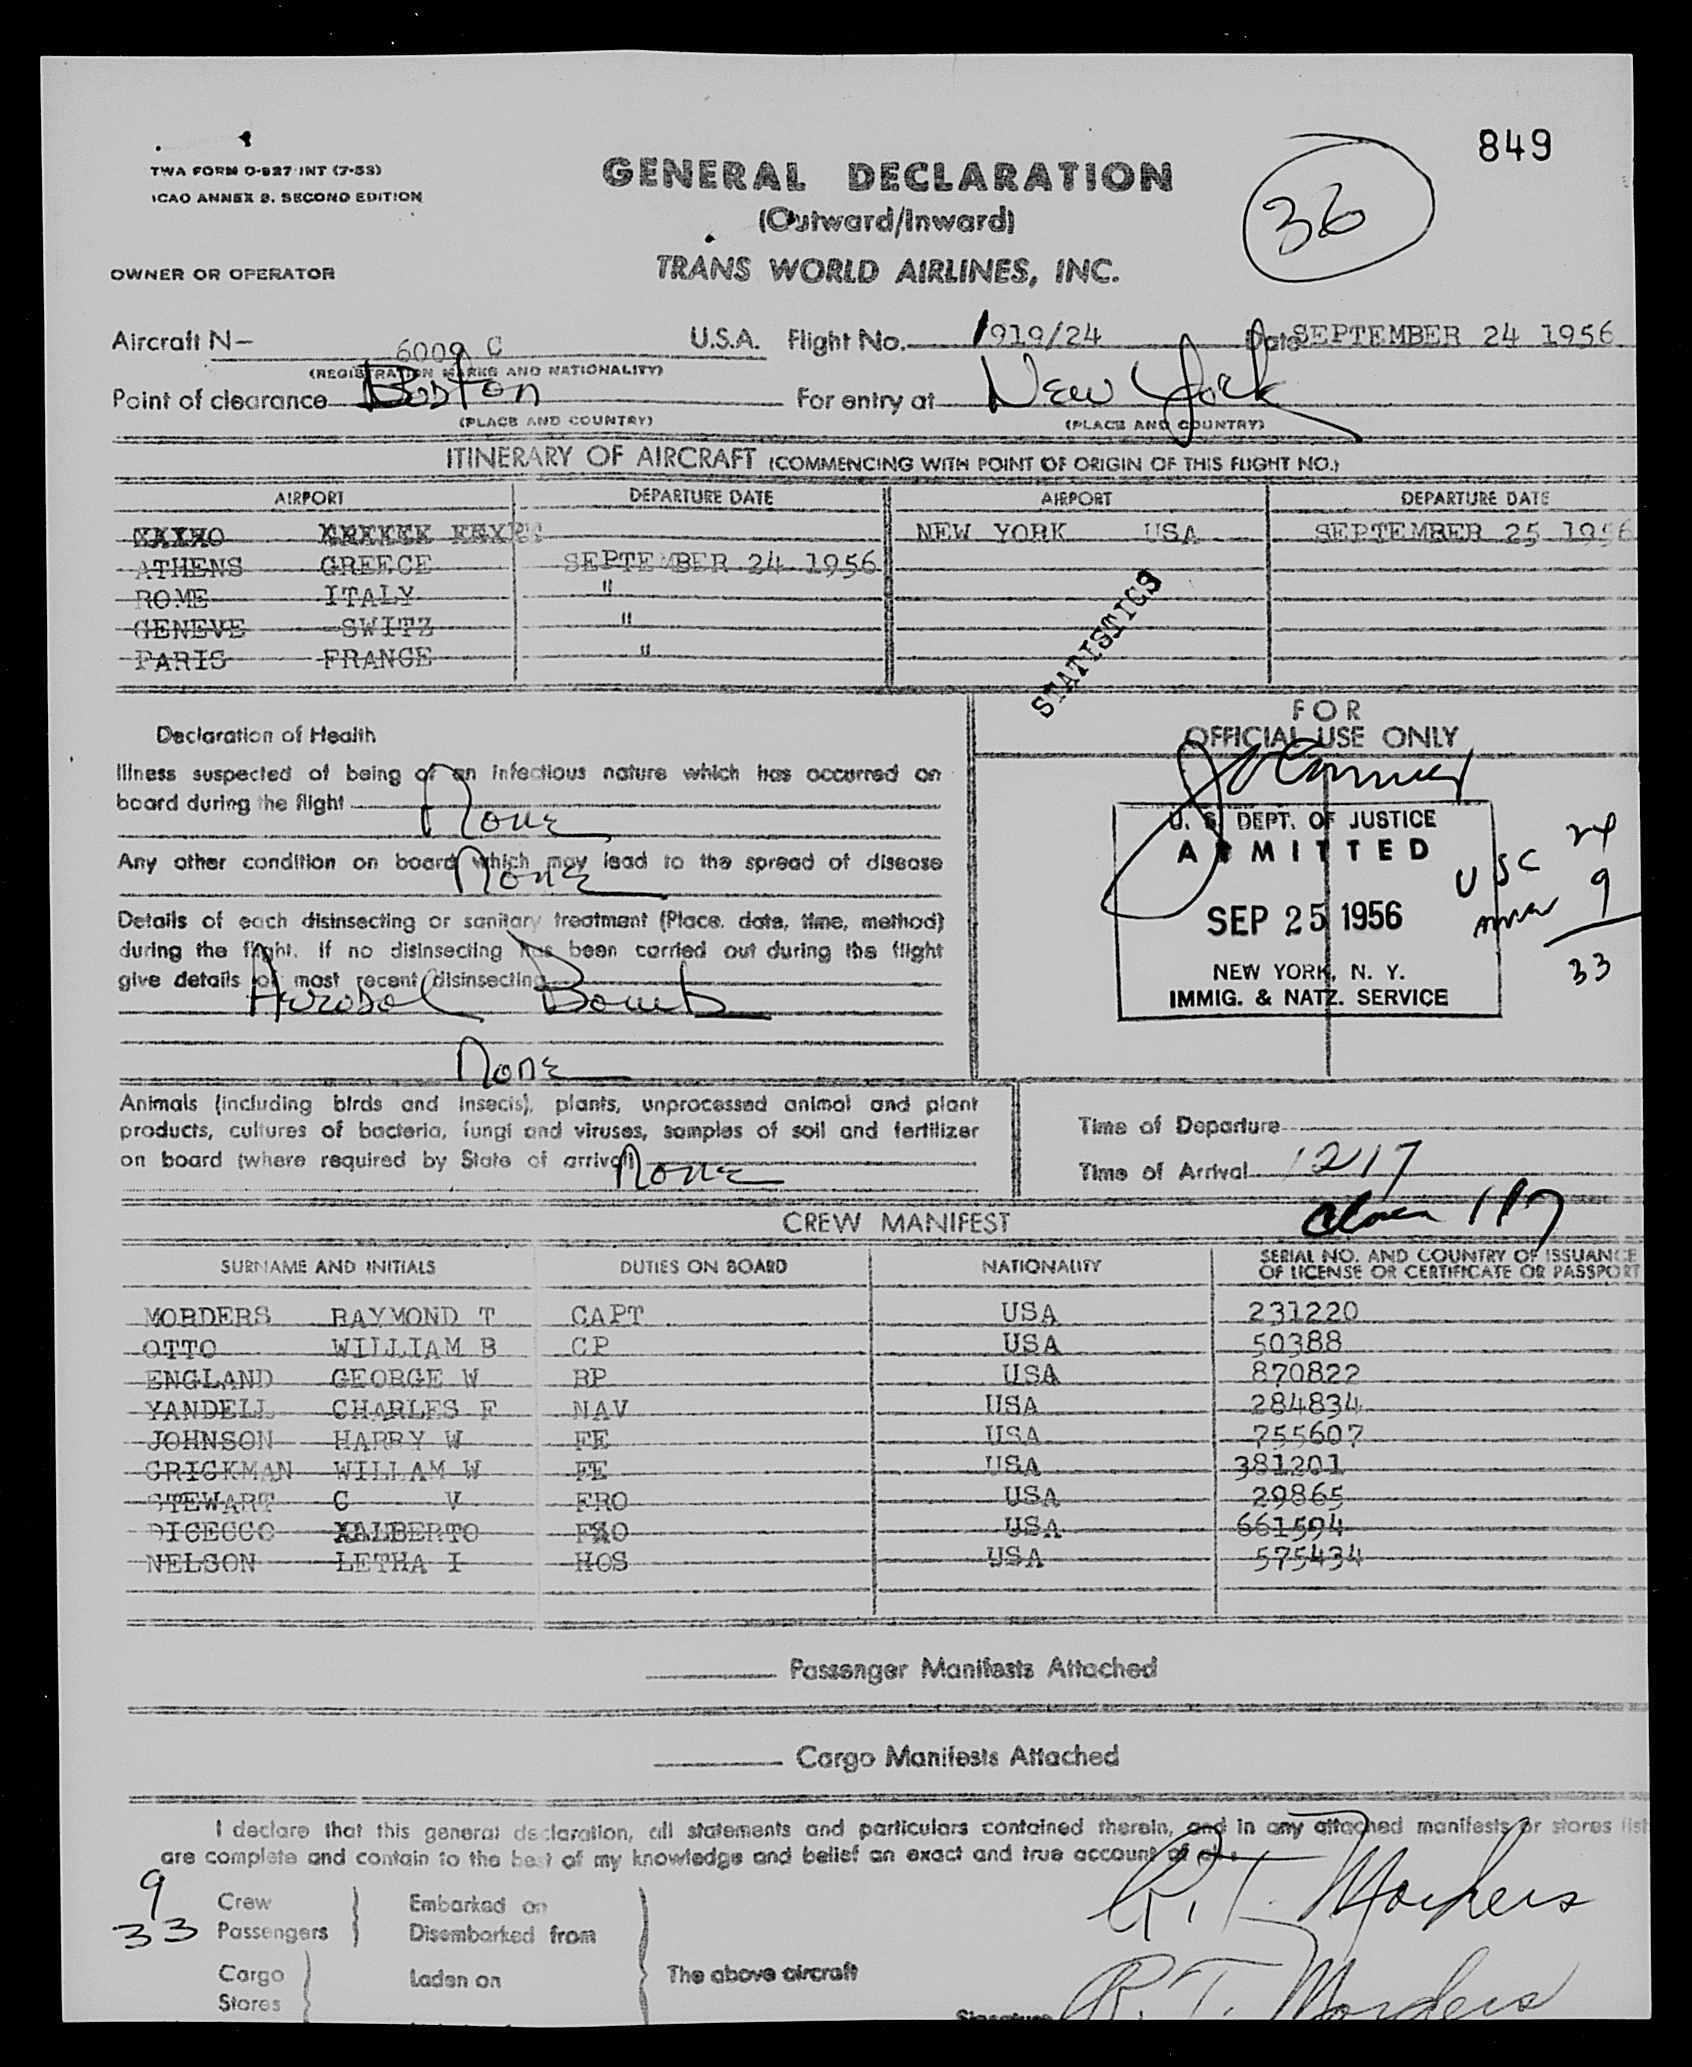 849
TWA FORM O-927 INT (7-53)
ICAO ANNEX 9. SECOND EDITION
GENERAL DECLARATION
(Outward/Inward)
36
OWNER OR OPERATOR
TRANS WORLD AIRLINES, INC.
Aircraft N— 6009 C U.S.A. Flight No. 1919/24 Date SEPTEMBER 24 1956
(REGISTRATION MARKS AND NATIONALITY)
Point of clearance Boston For entry at New York
(PLACE AND COUNTRY) (PLACE AND COUNTRY)
ITINERARY OF AIRCRAFT (COMMENCING WITH POINT OF ORIGIN OF THIS FLIGHT NO.)
AIRPORT DEPARTURE DATE AIRPORT DEPARTURE DATE
NEW YORK USA SEPTEMBER 25 1956
ATHENS GREECE SEPTEMBER 24 1956
ROME ITALY "
GENEVE SWITZ "
PARIS FRANCE "
STATISTICS
FOR
OFFICIAL USE ONLY
Declaration of Health
Illness suspected of being of an infectious nature which has occurred on
board during the flight None
Any other condition on board which may lead to the spread of disease
None
Details of each disinsecting or sanitary treatment (Place, date, time, method)
during the flight. If no disinsecting has been carried out during the flight
give details of most recent disinsecting
Aerosol Bomb
None
U. S. DEPT. OF JUSTICE
ADMITTED
SEP 25 1956
NEW YORK, N. Y.
IMMIG. & NATZ. SERVICE
USC 24
9
33
Animals (including birds and insects), plants, unprocessed animal and plant
products, cultures of bacteria, fungi and viruses, samples of soil and fertilizer
on board (where required by State of arrival) None
Time of Departure
Time of Arrival 1217
CREW MANIFEST
SURNAME AND INITIALS DUTIES ON BOARD NATIONALITY SERIAL NO. AND COUNTRY OF ISSUANCE
OF LICENSE OR CERTIFICATE OR PASSPORT
MORDERS RAYMOND T CAPT USA 231220
OTTO WILLIAM B CP USA 50388
ENGLAND GEORGE W RP USA 870822
YANDELL CHARLES F NAV USA 284834
JOHNSON HARRY W FE USA 755607
CRICKMAN WILLAM W FE USA 381201
STEWART C V FRO USA 29865
DICECCO XALBERTO FXO USA 661594
NELSON LETHA I HOS USA 575434
Passenger Manifests Attached
Cargo Manifests Attached
I declare that this general declaration, all statements and particulars contained therein, and in any attached manifests or stores list
are complete and contain to the best of my knowledge and belief an exact and true account of
R. T. Morders
9 Crew Embarked on
33 Passengers Disembarked from
Cargo Laden on The above aircraft
Stores
Signature R. T. Morders